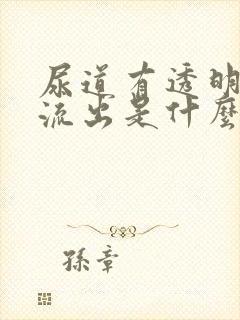 尿道有透明
流出是什麼
孫章